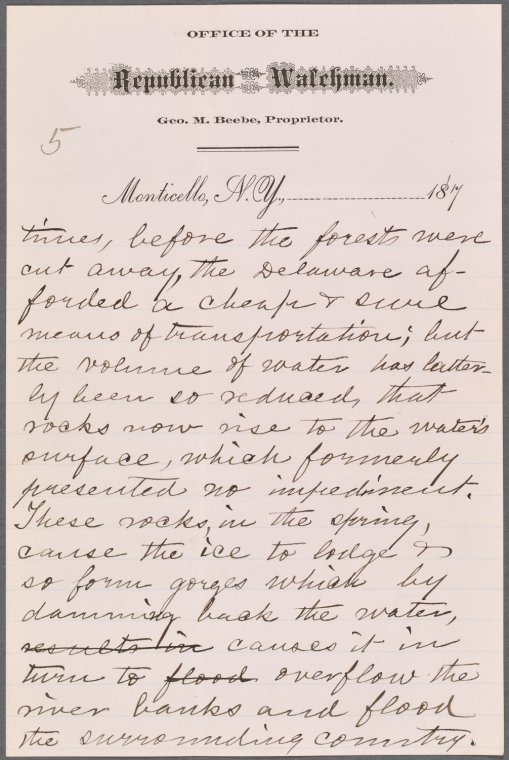 OFFICE OF THE
Republican Watchman.
Geo. M. Beebe, Proprietor.
5
Monticello, N. Y., 187
times, before the forests were
cut away, the Delaware af-
forded a cheap & sure
means of transportation; but
the volume of water has latter-
ly been so reduced, that
rocks now rise to the water's
surface, which formerly
presented no impediment.
These rocks, in the spring,
cause the ice to lodge &
so form gorges which by
damming back the water,
results in causes it in
turn to flood overflow the
river banks and flood
the surrounding country.